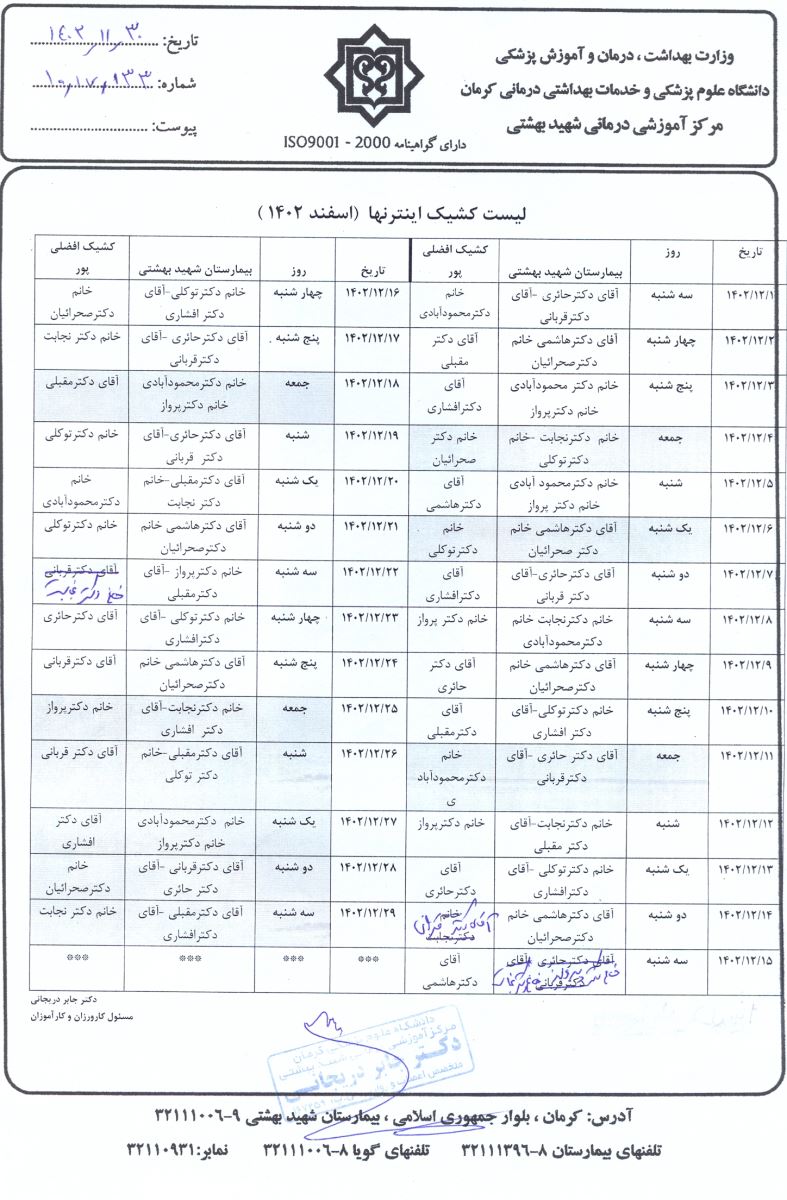 وزارت بهداشت ، درمان و آموزش پزشکی
دانشگاه علوم پزشکی و خدمات بهداشتی درمانی کرمان
مرکز آموزشی درمانی شهید بهشتی
دارای گواهینامه ISO9001 - 2000
تاریخ: ۱۴۰۲٫۱۱٫۳۰
شماره: ۱۰٫۱۷٫۹۳۳
پیوست:
لیست کشیک اینترنها (اسفند ۱۴۰۲)
تاریخ روز بیمارستان شهید بهشتی کشیک افضلی پور تاریخ روز بیمارستان شهید بهشتی کشیک افضلی پور
۱۴۰۲/۱۲/۱ سه شنبه آقای دکترحائری -آقای دکترقربانی خانم دکترمحمودآبادی ۱۴۰۲/۱۲/۱۶ چهار شنبه خانم دکترتوکلی-آقای دکتر افشاری خانم دکترصحرائیان
۱۴۰۲/۱۲/۲ چهار شنبه آقای دکترهاشمی خانم دکترصحرائیان آقای دکتر مقبلی ۱۴۰۲/۱۲/۱۷ پنج شنبه خانم دکترحائری -آقای دکترقربانی خانم دکتر نجابت
۱۴۰۲/۱۲/۳ پنج شنبه خانم دکتر محمودآبادی خانم دکترپرواز آقای دکترافشاری ۱۴۰۲/۱۲/۱۸ جمعه خانم دکترمحمودآبادی خانم دکترپرواز آقای دکترمقبلی
۱۴۰۲/۱۲/۴ جمعه خانم دکترنجابت -خانم دکترتوکلی خانم دکتر صحرائیان ۱۴۰۲/۱۲/۱۹ شنبه آقای دکترحائری-آقای دکتر قربانی خانم دکترتوکلی
۱۴۰۲/۱۲/۵ شنبه خانم دکترمحمود آبادی خانم دکتر پرواز آقای دکترهاشمی ۱۴۰۲/۱۲/۲۰ یک شنبه آقای دکترمقبلی-خانم دکتر نجابت خانم دکترمحمودآبادی
۱۴۰۲/۱۲/۶ یک شنبه آقای دکترهاشمی خانم دکتر صحرائیان خانم دکترتوکلی ۱۴۰۲/۱۲/۲۱ دو شنبه آقای دکترهاشمی خانم دکترصحرائیان خانم دکترتوکلی
۱۴۰۲/۱۲/۷ دو شنبه آقای دکترحائری-آقای دکتر قربانی آقای دکترافشاری ۱۴۰۲/۱۲/۲۲ سه شنبه خانم دکترپرواز -آقای دکترمقبلی آقای دکترقربانی خانم دکتر نجابت
۱۴۰۲/۱۲/۸ سه شنبه خانم دکترنجابت خانم دکترمحمودآبادی خانم دکتر پرواز ۱۴۰۲/۱۲/۲۳ چهار شنبه خانم دکترتوکلی -آقای دکترافشاری آقای دکترحائری
۱۴۰۲/۱۲/۹ چهار شنبه آقای دکترهاشمی خانم دکترصحرائیان آقای دکتر حائری ۱۴۰۲/۱۲/۲۴ پنج شنبه آقای دکترهاشمی خانم دکترصحرائیان آقای دکترقربانی
۱۴۰۲/۱۲/۱۰ پنج شنبه خانم دکترتوکلی-آقای دکتر افشاری آقای دکترمقبلی ۱۴۰۲/۱۲/۲۵ جمعه خانم دکترنجابت-آقای دکتر افشاری خانم دکترپرواز
۱۴۰۲/۱۲/۱۱ جمعه آقای دکتر حائری -آقای دکترقربانی خانم دکترمحمودآباد ی ۱۴۰۲/۱۲/۲۶ شنبه آقای دکترمقبلی-خانم دکتر توکلی آقای دکتر قربانی
۱۴۰۲/۱۲/۱۲ شنبه خانم دکترنجابت-آقای دکتر مقبلی خانم دکترپرواز ۱۴۰۲/۱۲/۲۷ یک شنبه خانم دکترمحمودآبادی خانم دکترپرواز آقای دکتر افشاری
۱۴۰۲/۱۲/۱۳ یک شنبه خانم دکتر توکلی -آقای دکترافشاری آقای دکترحائری ۱۴۰۲/۱۲/۲۸ دو شنبه آقای دکترقربانی -آقای دکتر حائری خانم دکترصحرائیان
۱۴۰۲/۱۲/۱۴ دو شنبه آقای دکترهاشمی خانم دکترصحرائیان خانم دکترنجابت آقای دکتر قربانی ۱۴۰۲/۱۲/۲۹ سه شنبه آقای دکترمقبلی -آقای دکترافشاری خانم دکتر نجابت
۱۴۰۲/۱۲/۱۵ سه شنبه آقای دکترحائری -آقای دکترقربانی آقای دکترهاشمی *** *** *** ***
دکتر جابر دریجانی
مسئول کارورزان و کارآموزان
دانشگاه علوم پزشکی کرمان
مرکز آموزشی درمانی شهید بهشتی
دکتر جابر دریجانی
آدرس: کرمان ، بلوار جمهوری اسلامی ، بیمارستان شهید بهشتی ۹-۳۲۱۱۱۰۰۶
تلفنهای بیمارستان ۸-۳۲۱۱۱۳۹۶ تلفنهای گویا ۸-۳۲۱۱۱۰۰۶ نمابر:۳۲۱۱۰۹۳۱